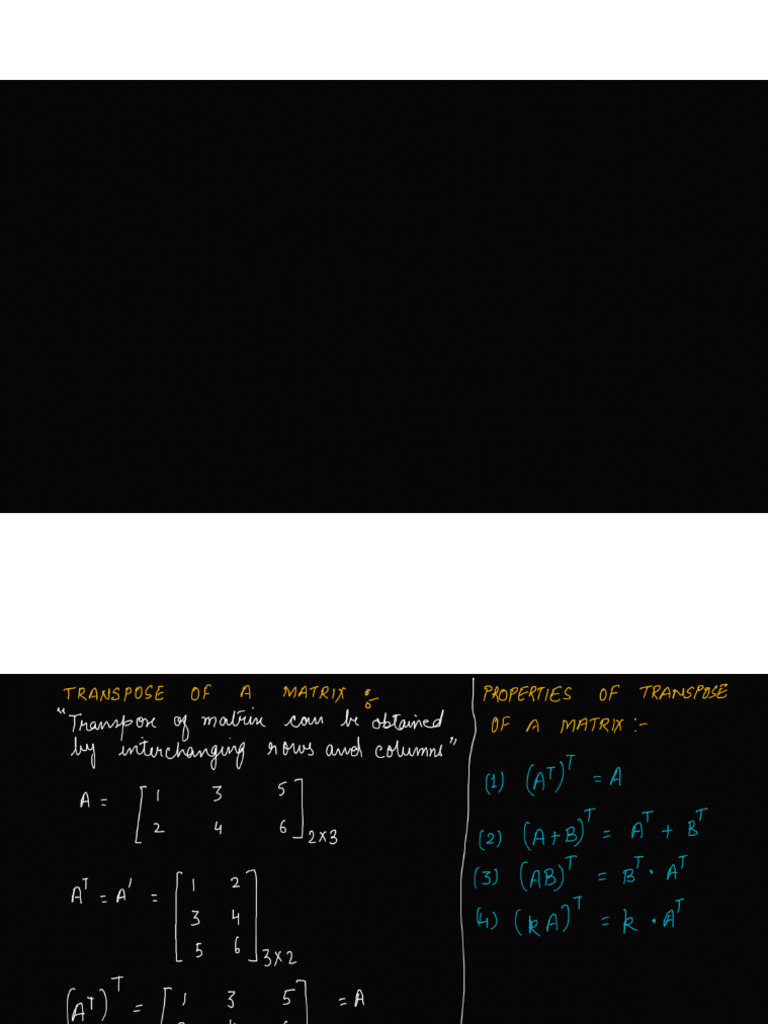 TRANSPOSE OF A MATRIX :-
"Transpose of matrix can be obtained
by interchanging rows and columns"
A = [1 3 5
2 4 6]2×3
Aᵀ = A' = [1 2
3 4
5 6]3×2
(Aᵀ)ᵀ = [1 3 5 = A
PROPERTIES OF TRANSPOSE
OF A MATRIX :-
(1) (Aᵀ)ᵀ = A
(2) (A+B)ᵀ = Aᵀ + Bᵀ
(3) (AB)ᵀ = Bᵀ · Aᵀ
(4) (kA)ᵀ = k · Aᵀ